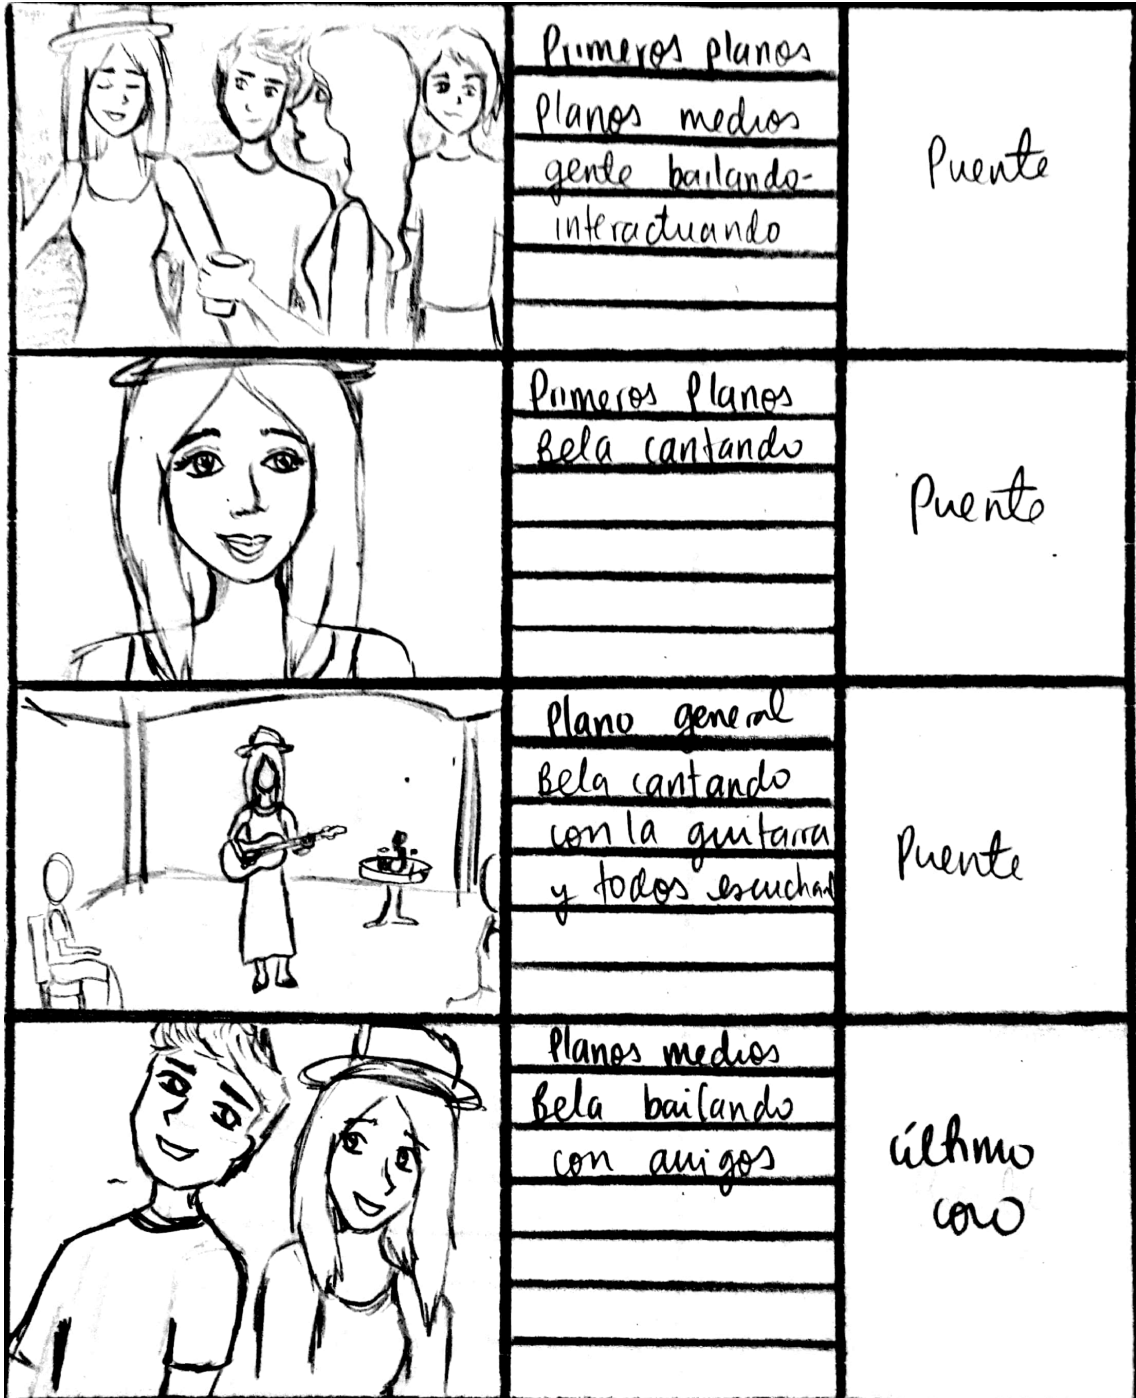 Primeros planos
Planos medios
gente bailando-
interactuando
Puente
Primeros Planos
Bela cantando
Puente
Plano general
Bela cantando
con la guitarra
y todos escuchan
Puente
Planos medios
Bela bailando
con amigos
último
coro